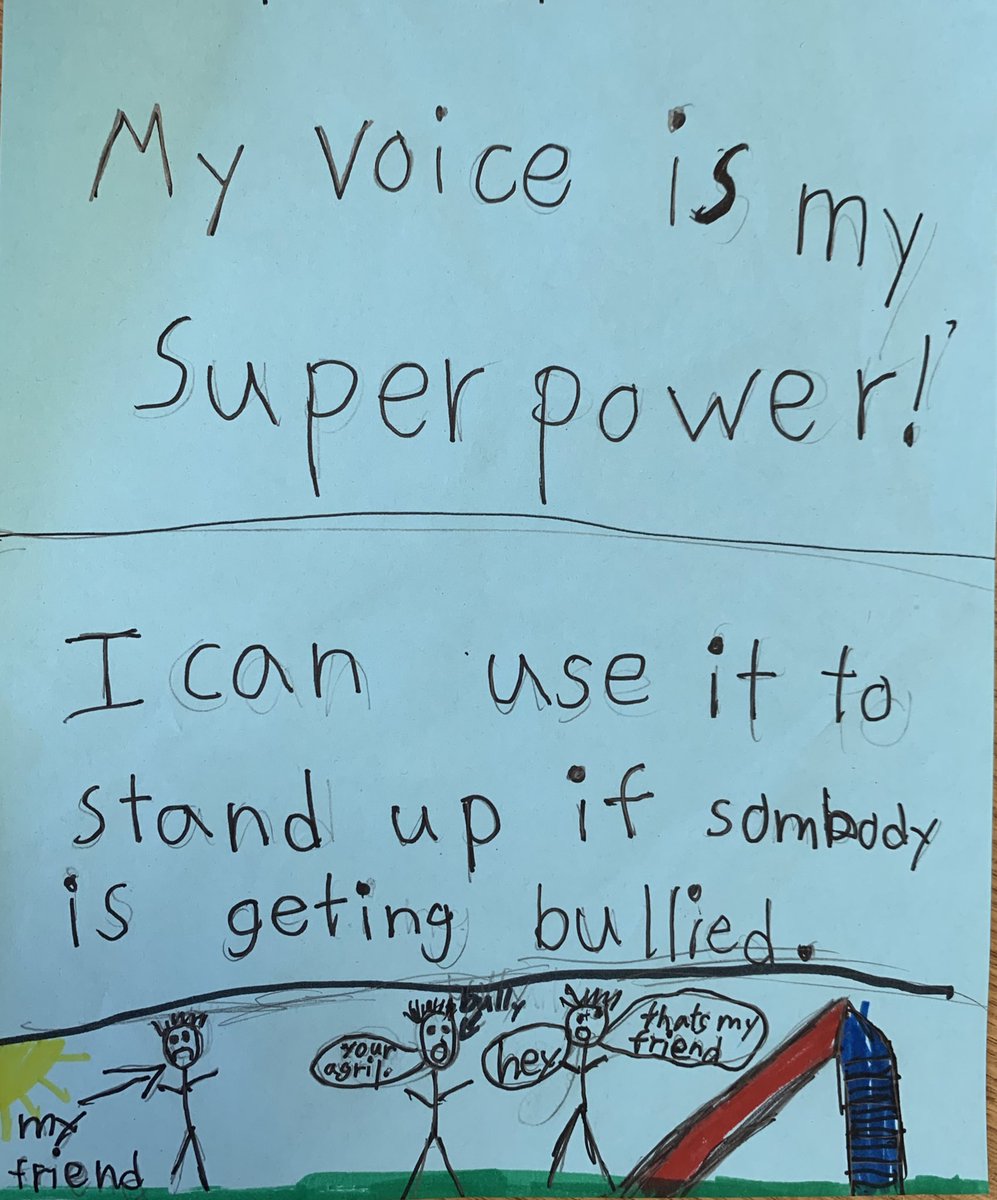 My voice is my
Super power!
I can use it to
stand up if sombody
is geting bullied.
bully
your
agril.
hey
thats my
friend
my
friend